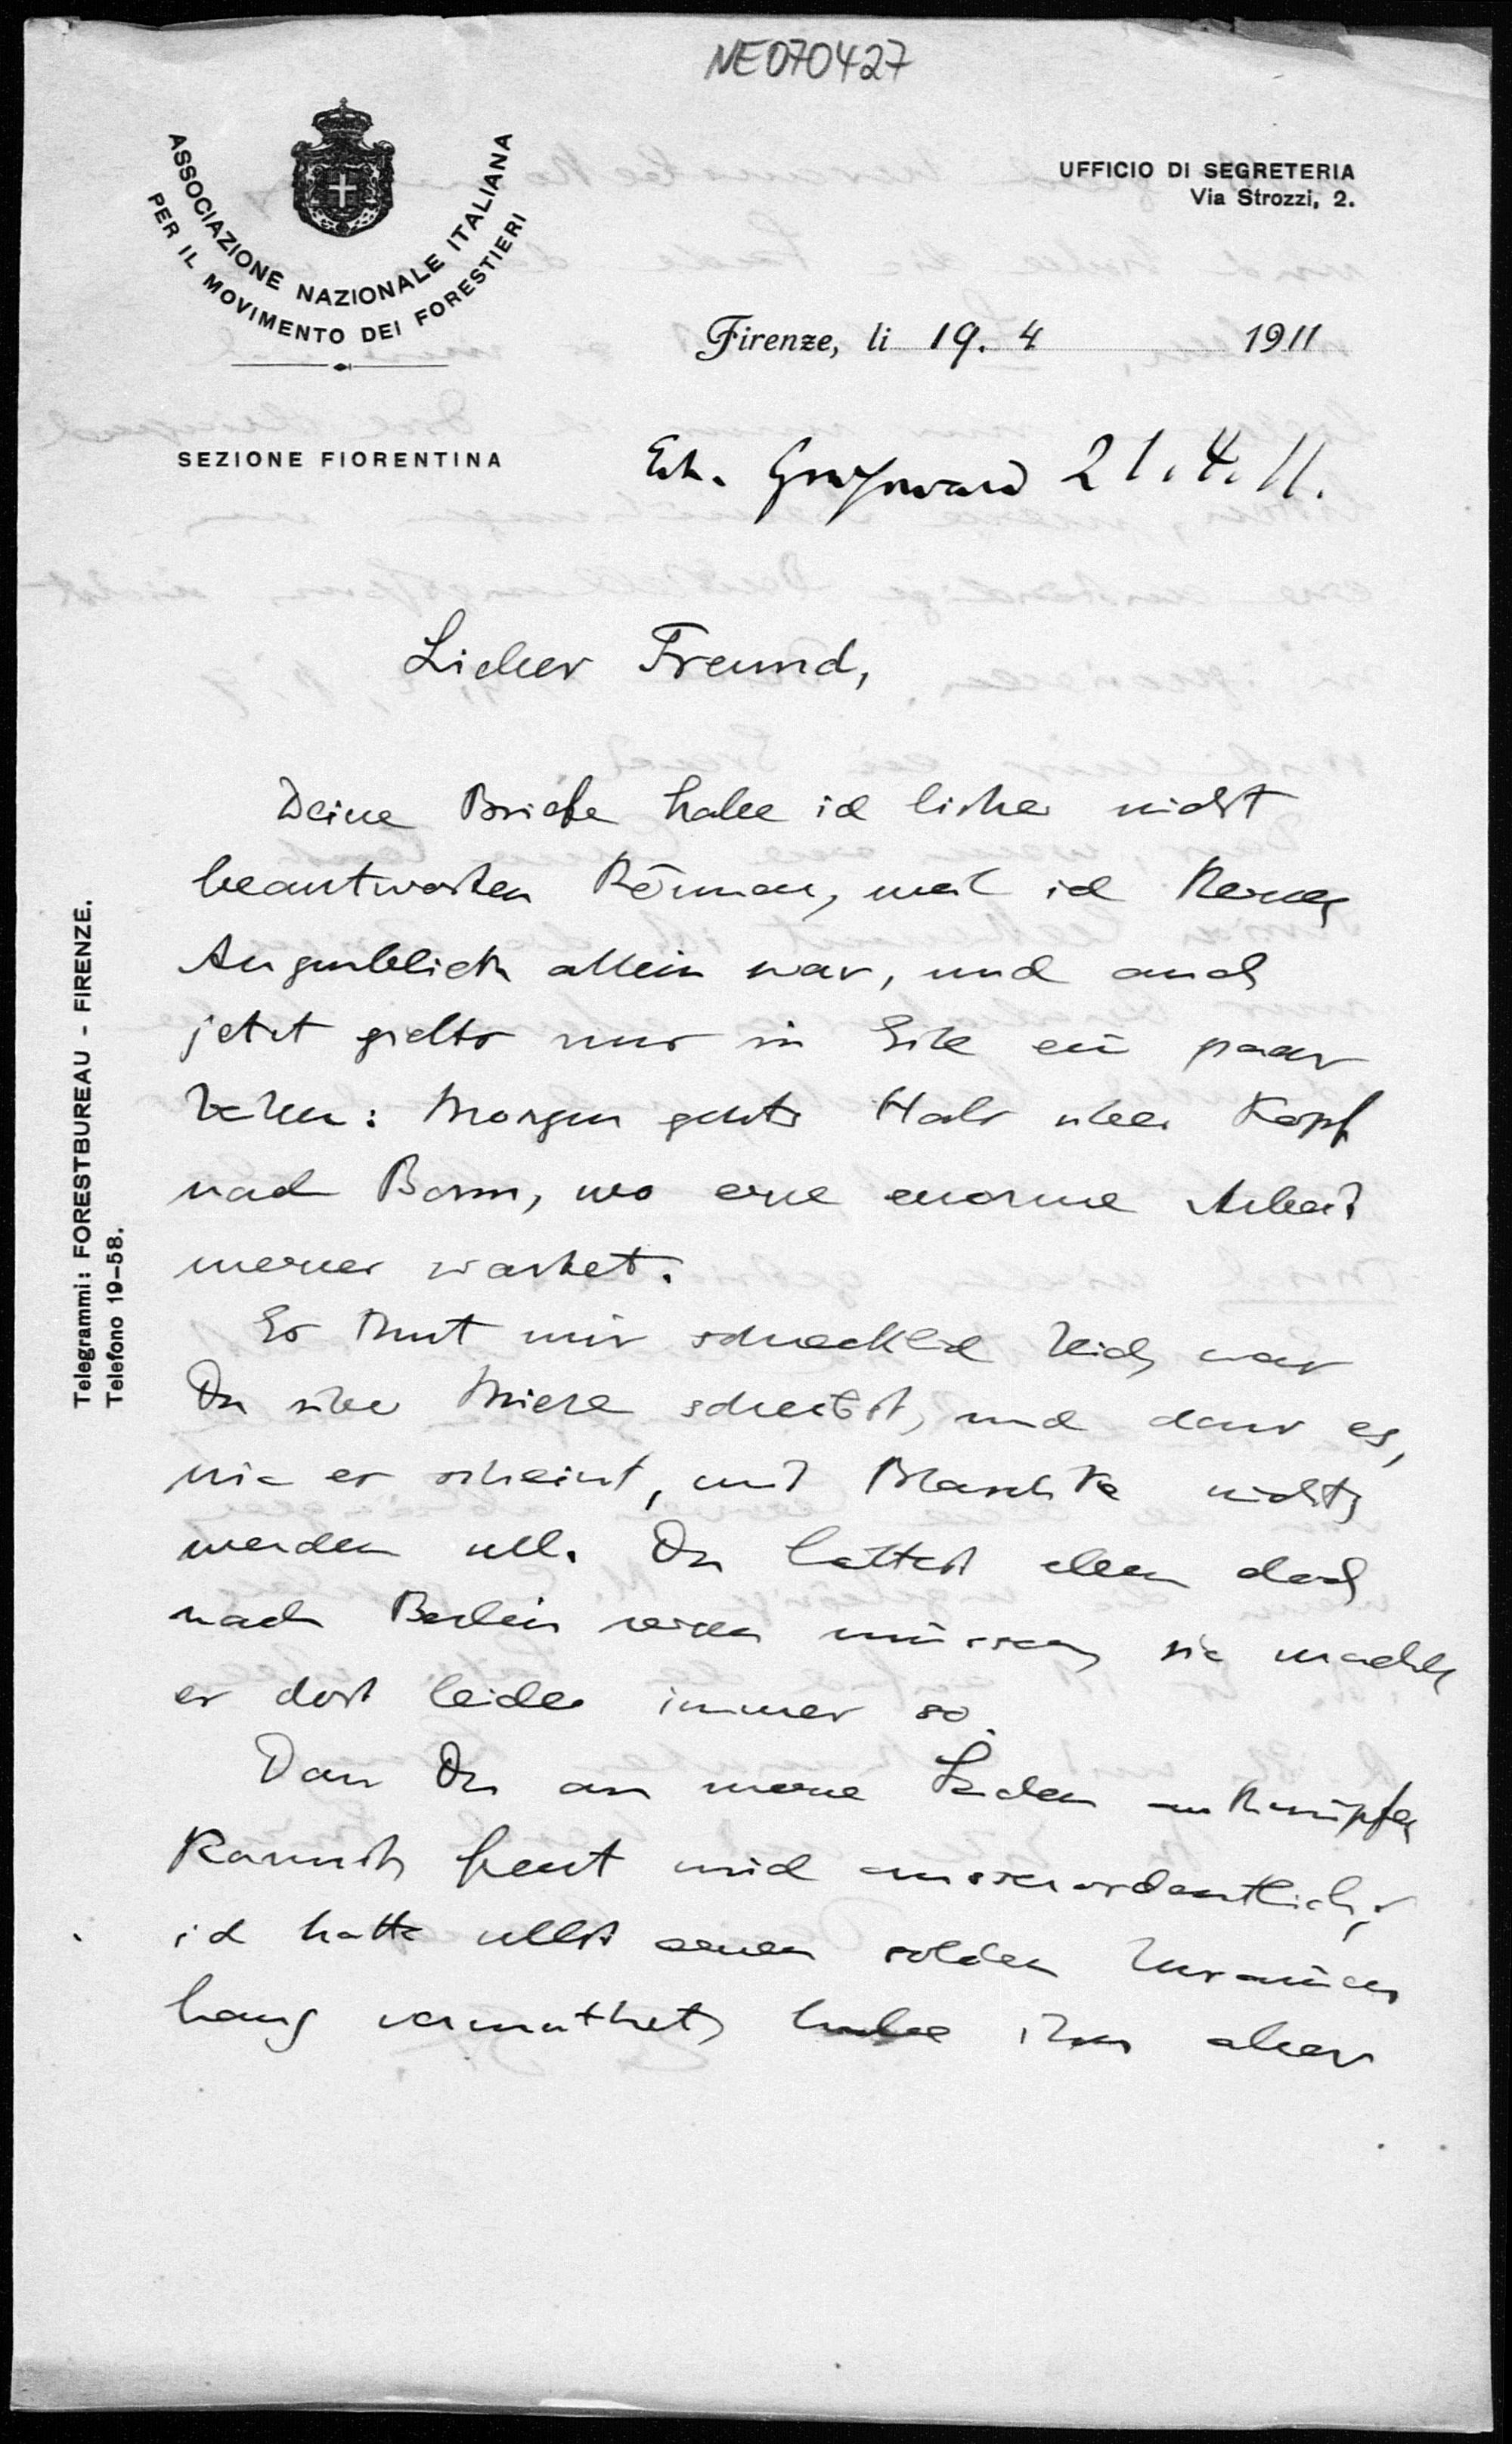 NE070427
ASSOCIAZIONE NAZIONALE ITALIANA
PER IL MOVIMENTO DEI FORESTIERI
UFFICIO DI SEGRETERIA
Via Strozzi, 2.
Firenze, li 19. 4 1911
SEZIONE FIORENTINA
Erh. Greifswald 21.4.11.
Lieber Freund,
Deine Briefe habe ich bisher nicht
beantworten können, weil ich keinen
Augenblick allein war, und auch
jetzt giebts nur in Eile ein paar
Zeilen: Morgen gehts Hals über Kopf
nach Bonn, wo eine enorme Arbeit
meiner wartet.
Es thut mir schrecklich leid, was
Du über Mieze schreibst, und dass es,
wie es scheint, mit Blaschke nichts
werden will. Du hättest eben doch
nach Berlin reisen müssen, sie machen
es dort leider immer so.
Dass Du an meine Sachen anknüpfen
kannst, freut mich ausserordentlich;
ich hatte selbst einen solchen Zusammen
hang vermuthet, habe ihn aber
Telegrammi: FORESTBUREAU - FIRENZE.
Telefono 19-58.